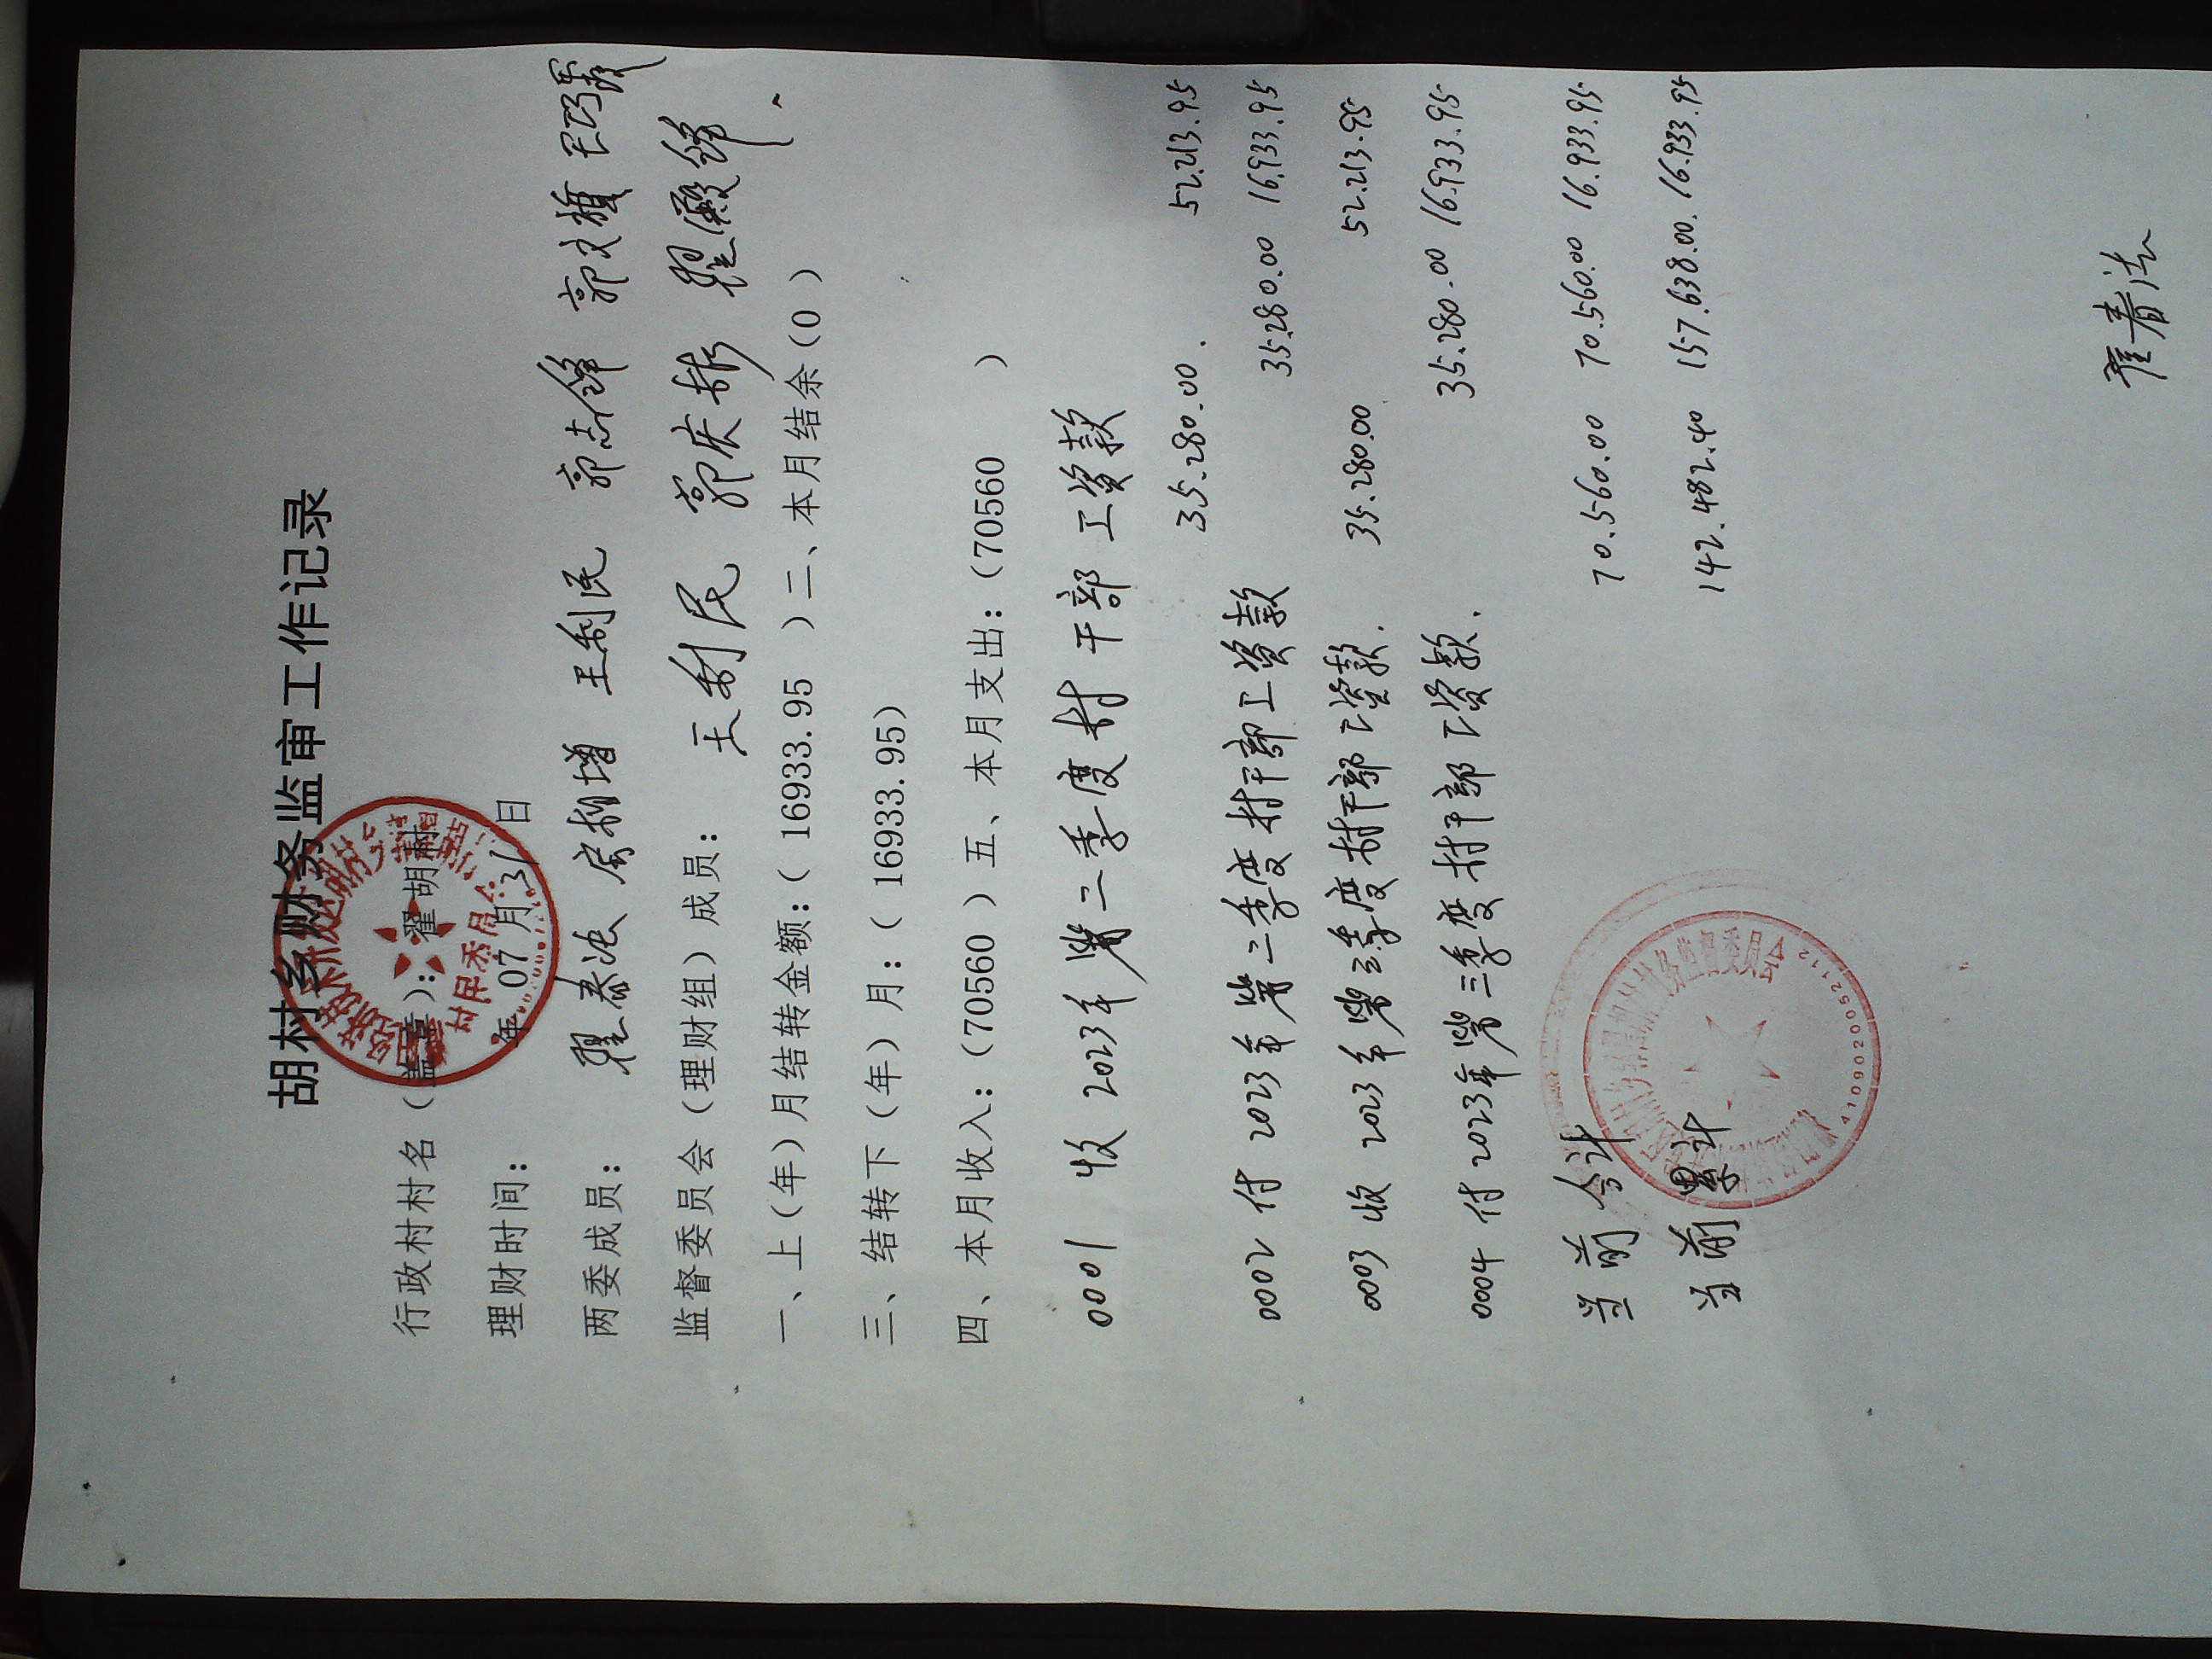 胡村乡财务监审工作记录
行政村村名（盖章）：翟胡村
理财时间： 年 07 月 31 日
两委成员： 王利民 郭志锋 郭文植
监督委员会（理财组）成员： 王利民 郭庆彬 翟殿锋
一、上（年）月结转金额：（ 16933.95 ）二、本月结余（0 ）
三、结转下（年）月：（ 16933.95）
四、本月收入：（70560 ）五、本月支出：（70560 ）
0001 收 2023年第二季度村干部工资款
35.280.00. 52.213.95
0002 付 2023年第二季度村干部工资款 35.280.00 16933.95
0003 收 2023年第三季度村干部工资款. 35.280.00 52.213.95
0004 付 2023年第三季度村干部工资款. 35.280.00 16933.95
当前合计 70.560.00 70.560.00 16.933.95
当前累计 142.482.40 157.638.00. 16.933.95
4109020052112